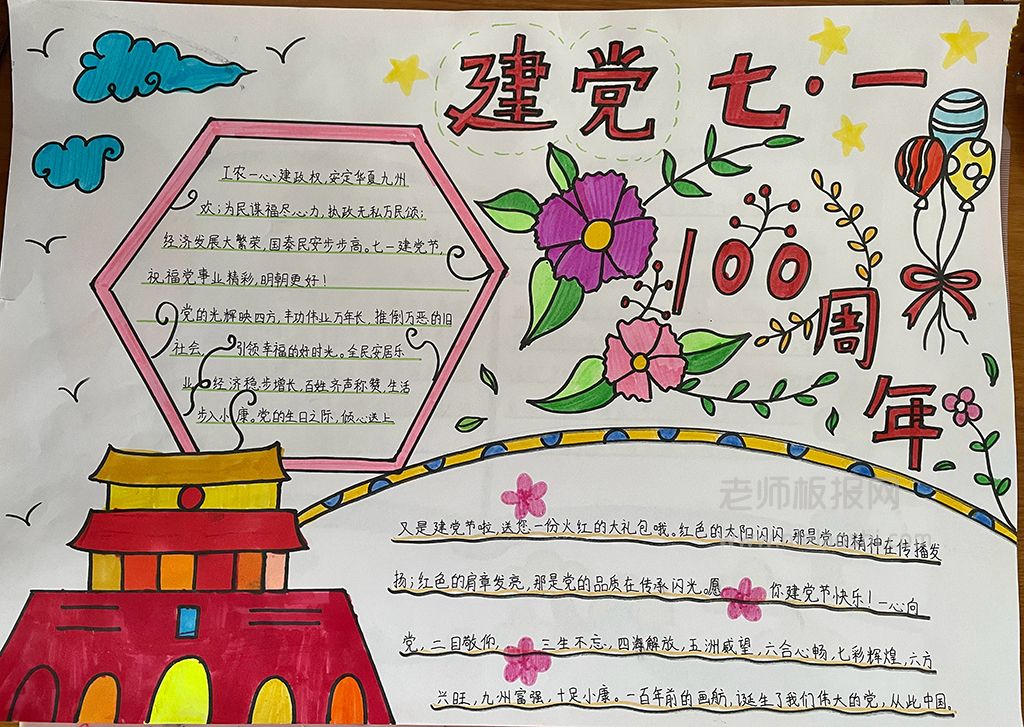 建党七·一
100
周
年
工农一心建政权,安定华夏九州
欢;为民谋福尽心力,执政无私万民颂;
经济发展大繁荣,国泰民安步步高。七一建党节,
祝福党事业精彩,明朝更好!
党的光辉映四方,丰功伟业万年长,推倒万恶的旧
社会,引领幸福的好时光。全民安居乐
业 经济稳步增长,百姓齐声称赞,生活
步入小康。党的生日之际,倾心送上
老师板报网
又是建党节啦,送您一份火红的大礼包哦。红色的太阳闪闪,那是党的精神在传播发
扬;红色的肩章发亮,那是党的品质在传承闪光。愿你建党节快乐!一心向
党,二目敬仰,三生不忘,四海解放,五洲威望,六合心畅,七彩辉煌,六方
兴旺,九州富强,十足小康。一百年前的画舫,诞生了我们伟大的党,从此中国。